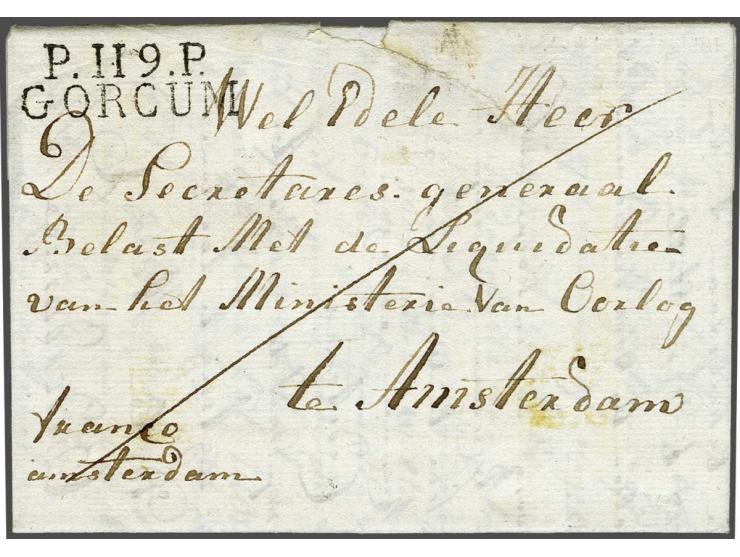 P.119.P.
GORCUM
Wel Edele Heer
De Secretares generaal.
Belast Met de Liquidatie
van het Ministerie Van Oorlog
te Amsterdam
franco
amsterdam